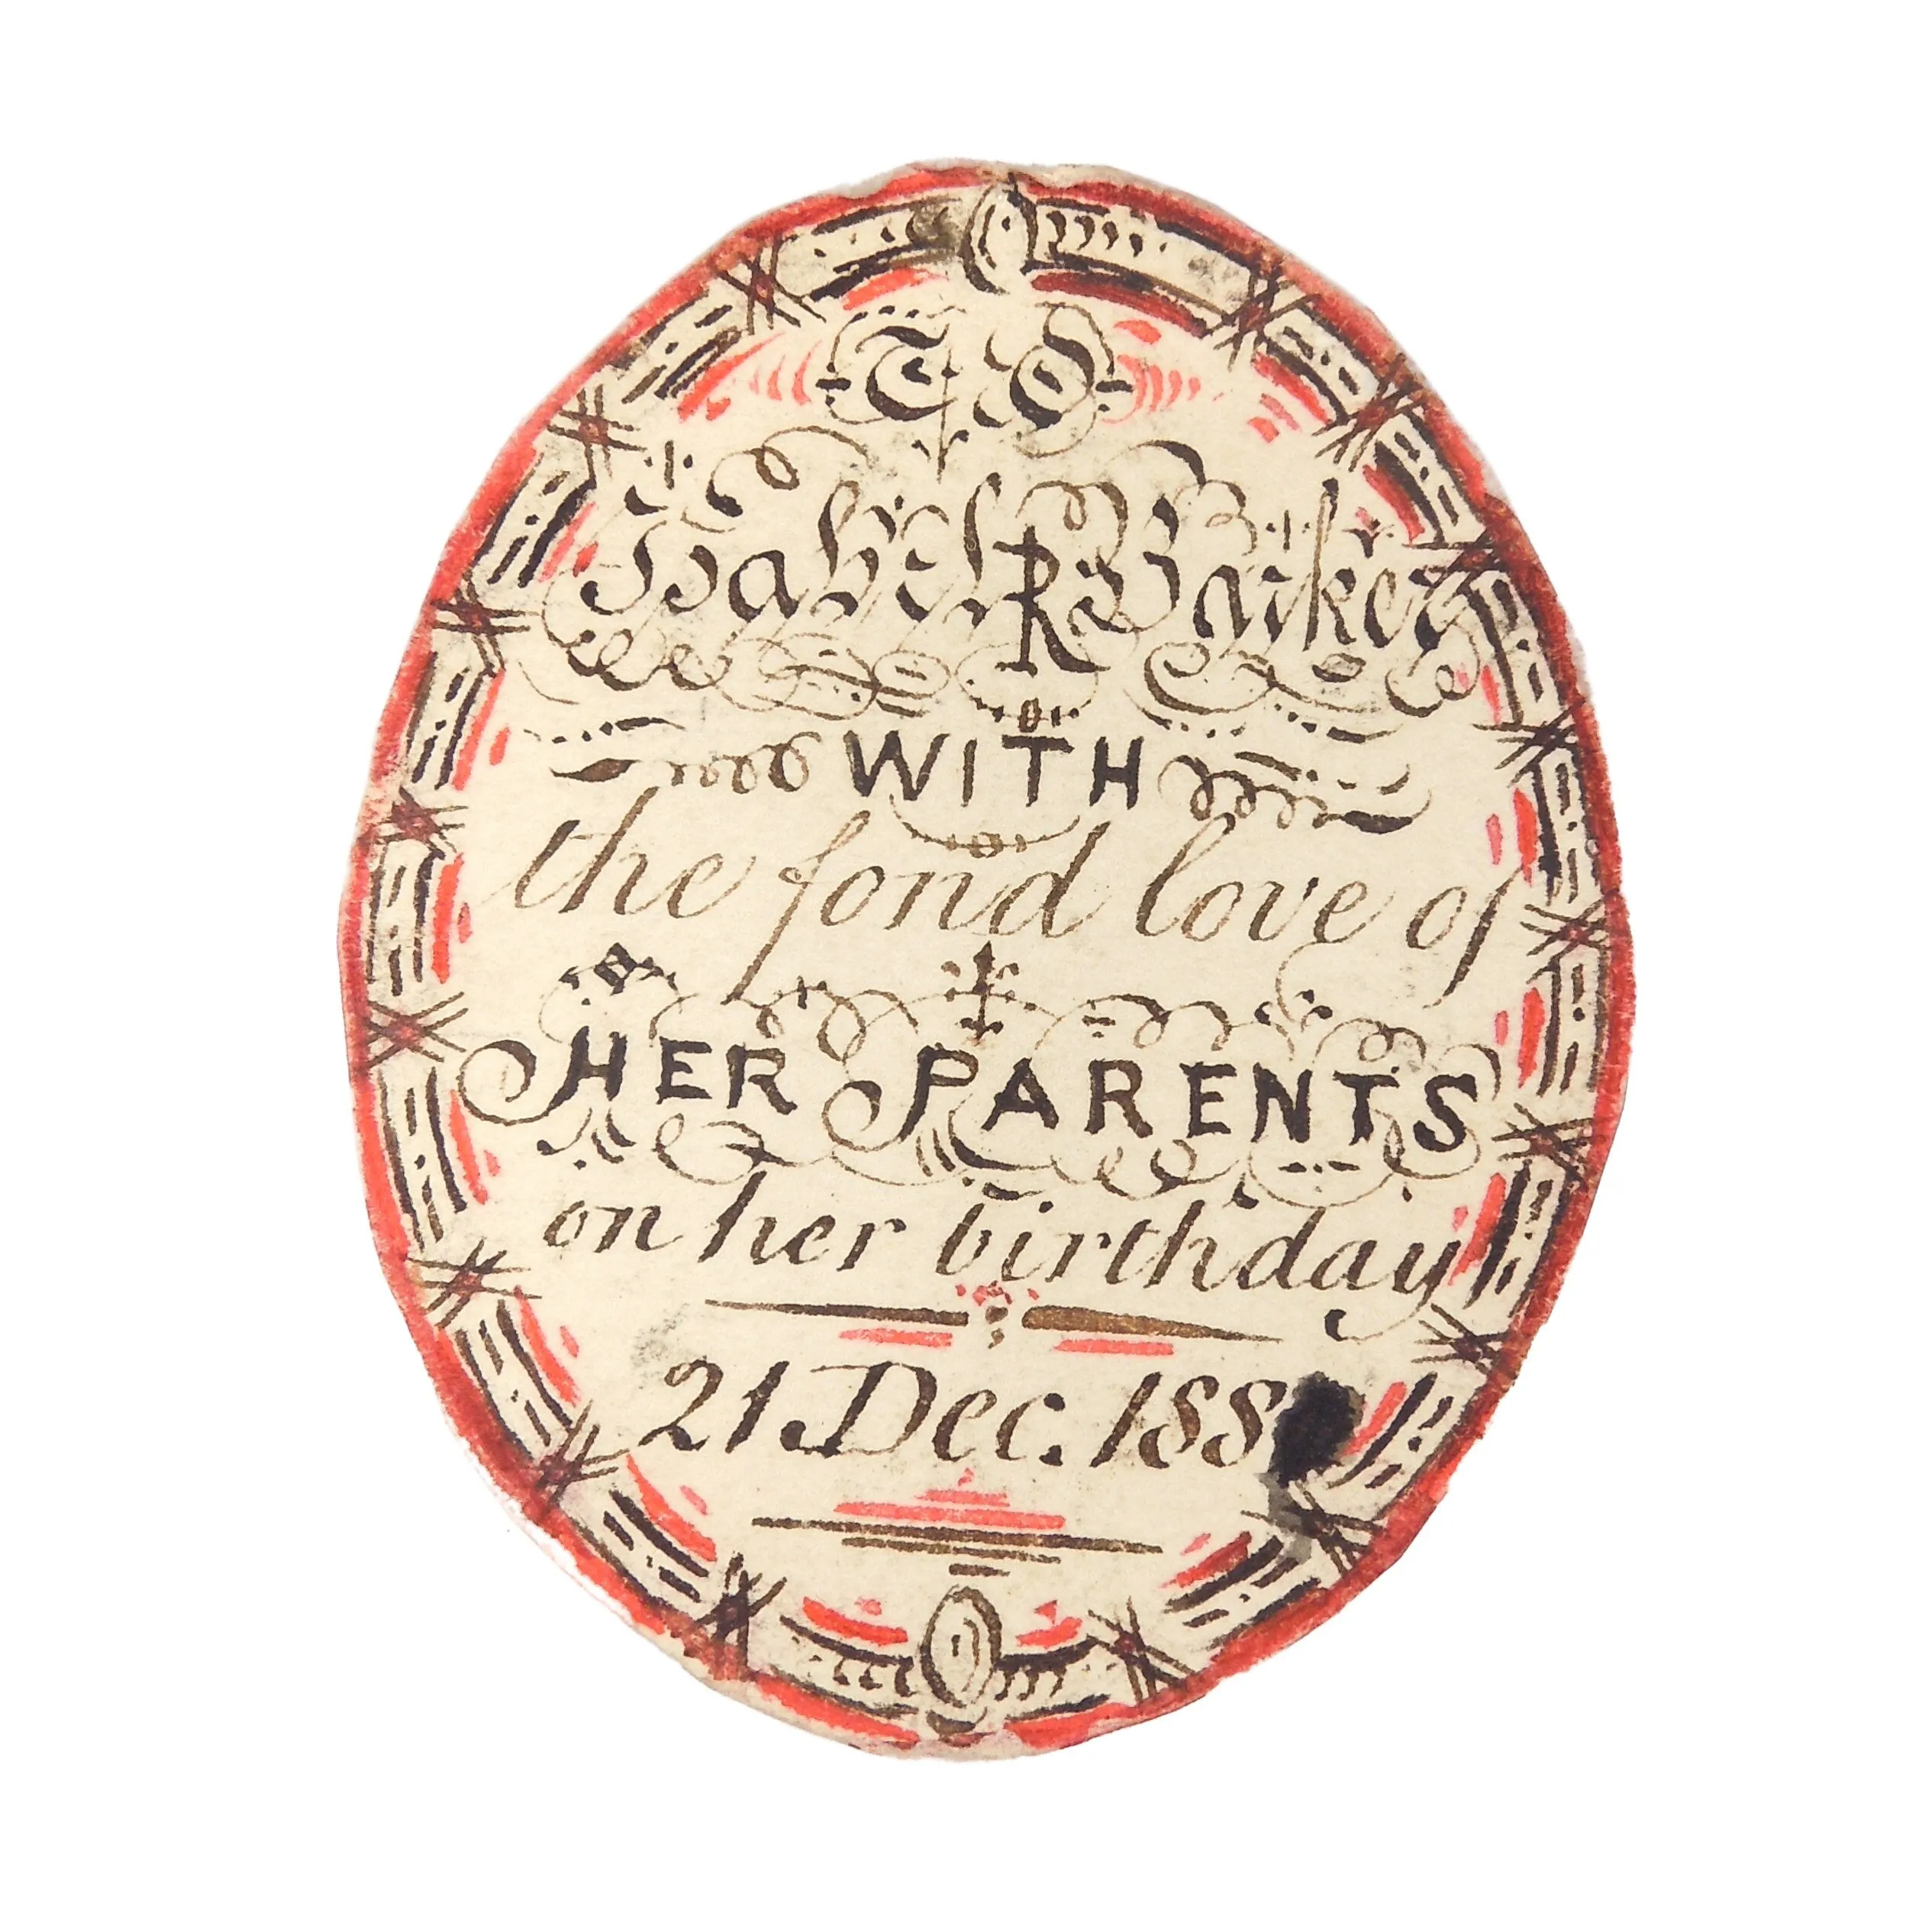 TO
Isabel R Barker
WITH
the fond love of
HER PARENTS
on her birthday
21 Dec. 188